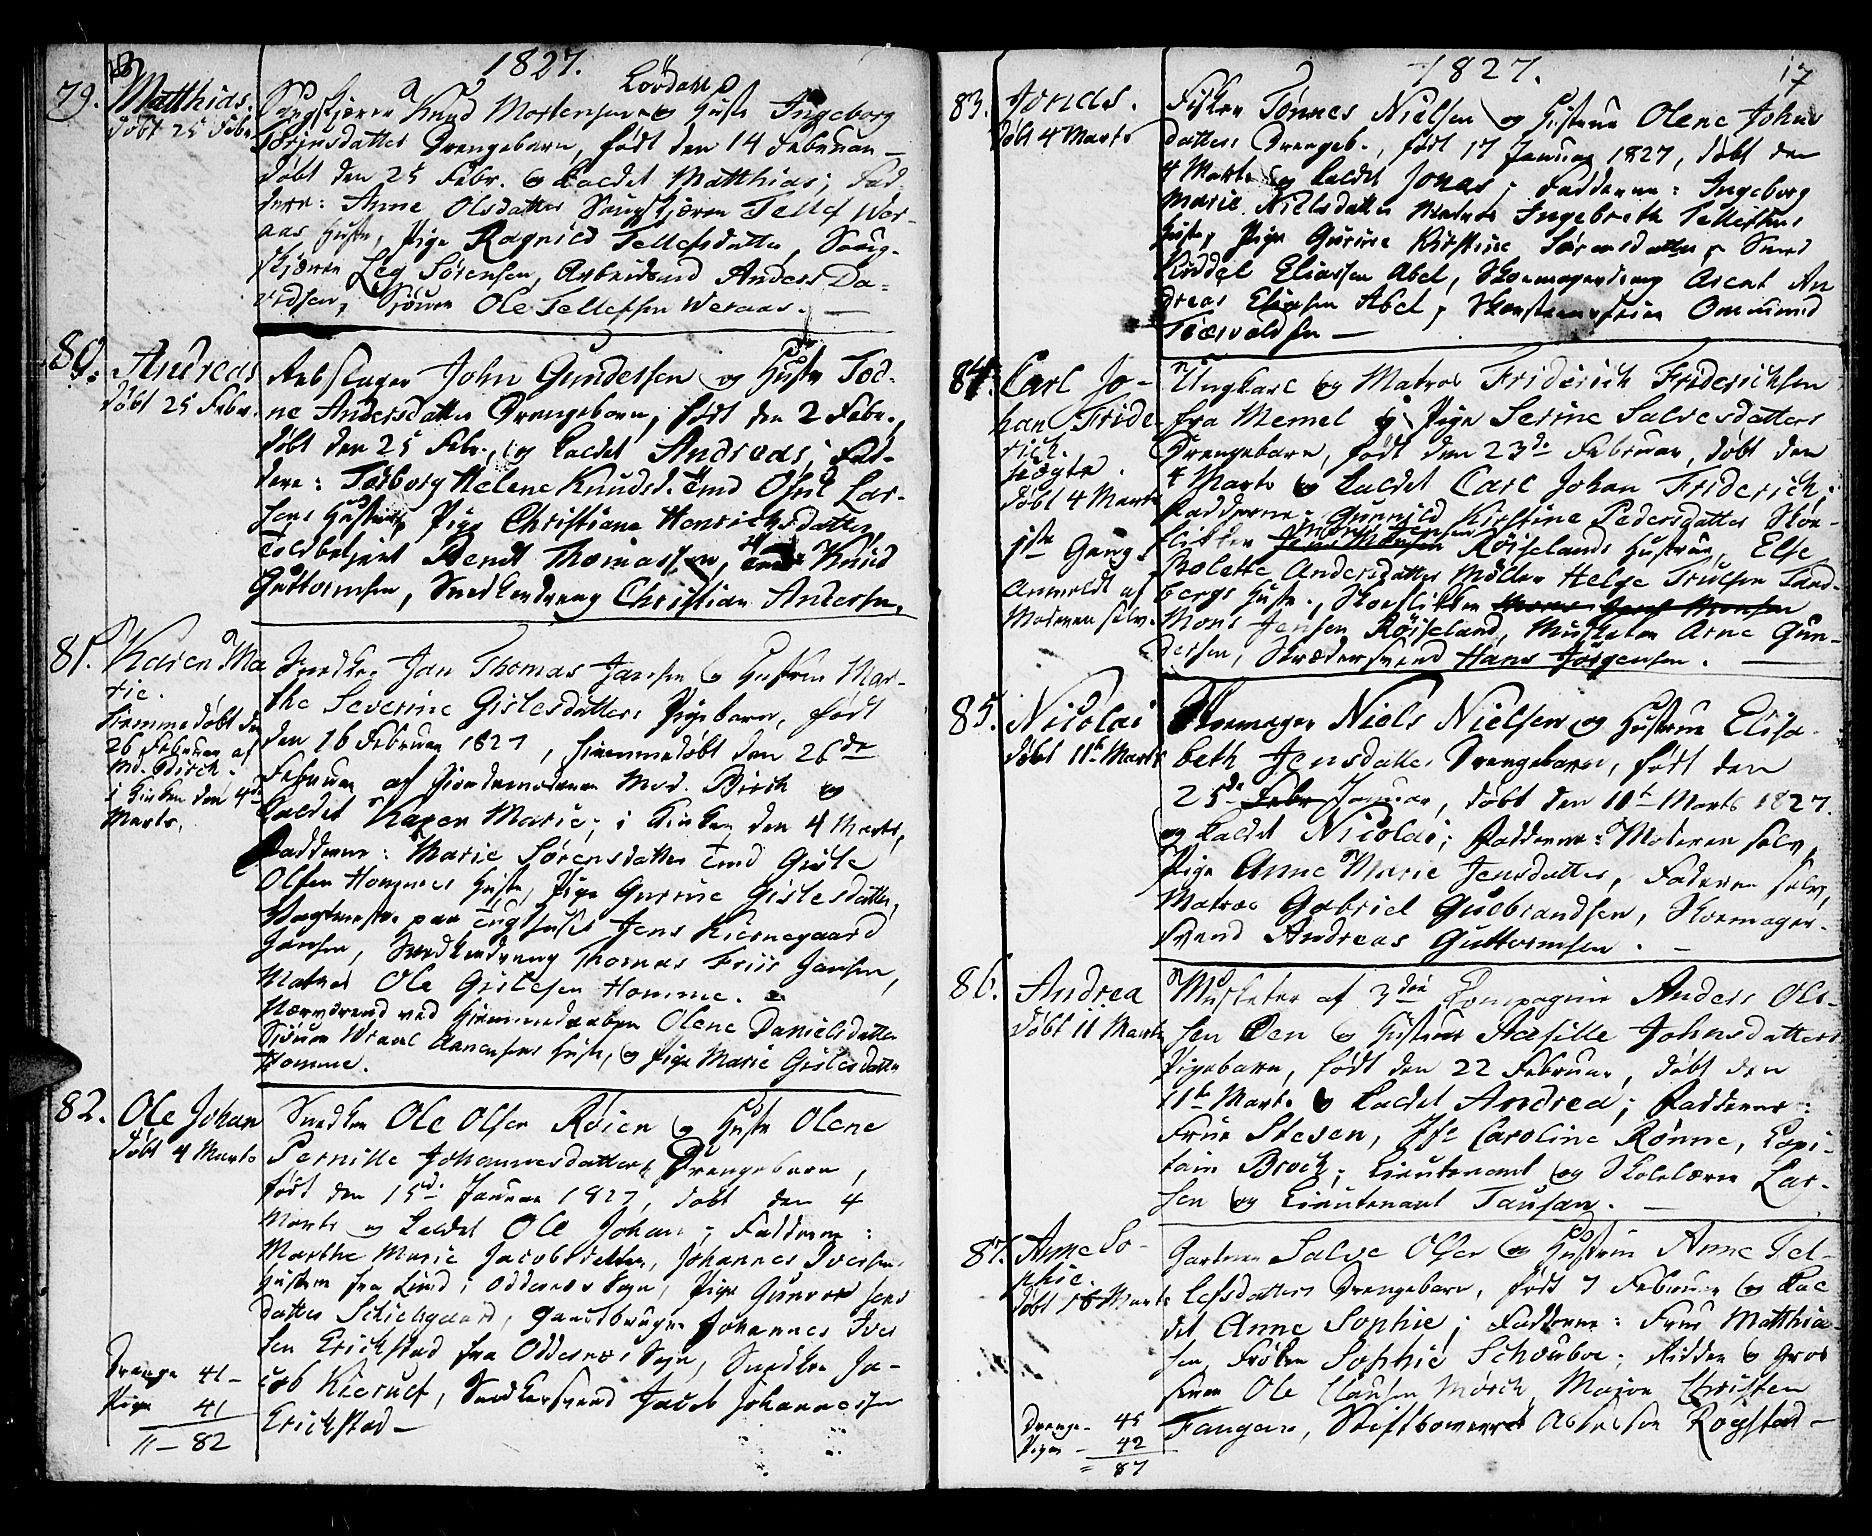 1827.
79. Matthias.
døbt 25 Febr.
Lovdahl
Sangskjærer Knud Mortensen og Hustr Ingeborg
Torjusdatters Drengebarn, født den 14 Februar
døbt den 25 Febr. og kaldet Matthias; Fad-
dere: Anne Olsdatter Saugskjærer Tellef Wer-
aas Hustr, Pige Ragnild Tellefsdatter, Saug-
skjærer Leg Sørensen, Arbeidsmd Anders Da-
vidsen, Sjøma Ole Tellefsen Weraas.
80. Andreas
døbt 25 Febr.
Rebslager John Gundersen og Hustr Tod-
ne Andersdatters Drengebarn, født den 2 Febr.,
døbt den 25 Febr., og kaldet Andreas; Fad-
dere: Torborg Helene Knudsd. Tmd Osul Lar-
sens Hustru, Pige Christiane Henrichsdatter,
Toldbetjent Bendt Thomassen, Tmd Knud
Guttormsen, Snedkerdreng Christian Andersen.
81. Karen Ma
rie.
Hiemmedøbt den
26 Februar af
Md. Birch.
i Kirken den 4de
Marts.
Snedker Jan Thomas Jansen og Hustru Mar-
the Severine Gislesdatters Pigebarn, født
den 16 Februar 1827, hiemmedøbt den 26de
Februar af Giordemoderen Mad. Birch og
kaldet Karen Marie; i Kirken den 4 Marts,
Fadderne: Marie Sørensdatter Tmd Gisle
Olsen Hommes Hustr, Pige Gurine Gislesdatter,
Vagtmester paa Tugthuset Jens Kiernegaard
Jansen, Snedkerdreng Thomas Friis Jansen,
Matros Ole Gislesen Homme.
Nærværend ved Hiemmedaaben Olene Danielsdatter
Sjøma Wraal Aanensens Hustr, og Pige Marie Gislesdatter
Homme.
82. Ole Johan
døbt 4 Marts
Snedker Ole Olsen Røien og Hustr Olene
Pernille Johannesdatters Drengebarn,
født den 15de Januar 1827, døbt den 4
Marts og kaldet Ole Johan; Fadderne:
Marthe Marie Jacobsdatter, Johannes Iversens
Hustru fra Lund i Oddernes Sogn, Pige Gunvor Jens
datter Schielsgaard, Gaardbruger Johannes Iver
sen Erichstad fra Oddernes Sogn, Snedker Ja-
cob Kierulf, Snedkersvend Jacob Johannessen
Erichstad
Drenge 41
Piger 41
82
1827.
17
83. Jonas.
døbt 4 Marts
Fisker Tønnes Nielsen og Hustrue Olene Johns
datters Drengeb., født 17 Januar 1827, døbt den
4 Marts og kaldet Jonas; Fadderne: Ingeborg
Marie Nielsdatter Matros Ingebreth Tellefsens
Hustr, Pige Gurine Kirstine Sørensdatter, Smed
Riddel Eliassen Abel, Skomagerdreng Arent An
dreas Eliassen Abel, Skorsteensfeier Ommund
Torvaldsen
84. Carl Jo-
han Fride
rich.
uægte.
døbt 4 Marts
1ste Gang.
Anmeldt af
Moderen selv.
Ungkarl og Matros Friderich Friderichsen
fra Memel og Pige Serine Salvesdatters
Drengebarn, født den 23de Februar, døbt den
4 Marts og kaldet Carl Johan Friderich;
Fadderne: Gunnild Kirstine Pedersdatter Skoe-
flikker Mons Jensen Røiselands Hustrue, Else
Rolette Andersdatter Møller Helge Truelsen Tand-
bergs Hustr., Skoeflikker
Mons Jensen Røiseland, Musketer Arne Gun-
dersen, Skrædersvend Hans Jørgensen.
85. Nicolai
døbt 11te Marts
Skomager Niels Nielsen og Hustrue Elisa-
beth Jensdatters Drengebarn, født den
25de Febr Januar, døbt den 11te Marts 1827.
og kaldet Nicolai; Fadderne: Moderen selv,
Pige Anne Marie Jensdatter, Faderen selv,
Matros Gabriel Gulbrandsen, Skomager-
svend Andreas Guttormsen.
86. Andrea
døbt 11 Marts
Musketer af 3die Compagnie Anders Ol-
sen Øen og Hustrue Assille Johnsdatters
Pigebarn, født den 22 Februar, døbt den
11te Marts og kaldet Andrea; Fadderne:
Frue Steven, Jfr Caroline Rønne, Capi-
tain Brock, Lieutenant og Skolelærer Lar-
sen og Lieutenant Tausan.
87. Anne So-
phie.
døbt Marts
Gartner Salve Olsen og Hustru Anne Tel-
lefsdatters Drengebarn, født 7 Februar og kal
det Anne Sophie; Fadderne: Frue Matthia-
sen, Frøken Sophie Schouboe, Ridder og Gros
serer Ole Clausen Mørch, Major Christen
Fangen, Stiftsoverrets Assessor Rogstad
Drenge 45
Piger 42
87